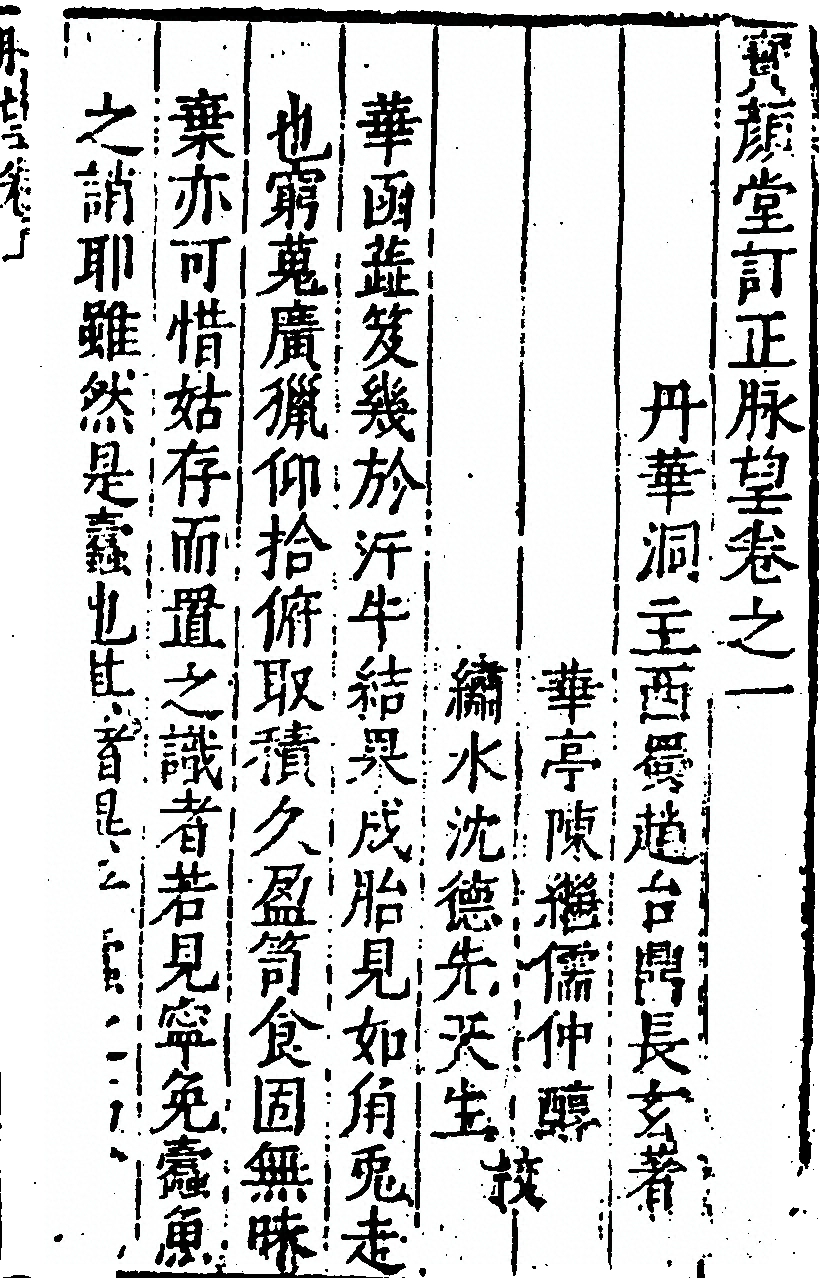 寶顏堂訂正脉望卷之一
丹華洞主西蜀趙台鼎長玄著
華亭陳繼儒仲醇
繡水沈德先天生
校
華函蕋笈幾於汗牛結果成胎見如角兎走
也窮蒐廣獵仰拾俯取積久盈笥食固無味
棄亦可惜姑存而置之識者若見寧免蠹魚
之誚耶雖然是蠹也其
脉望卷